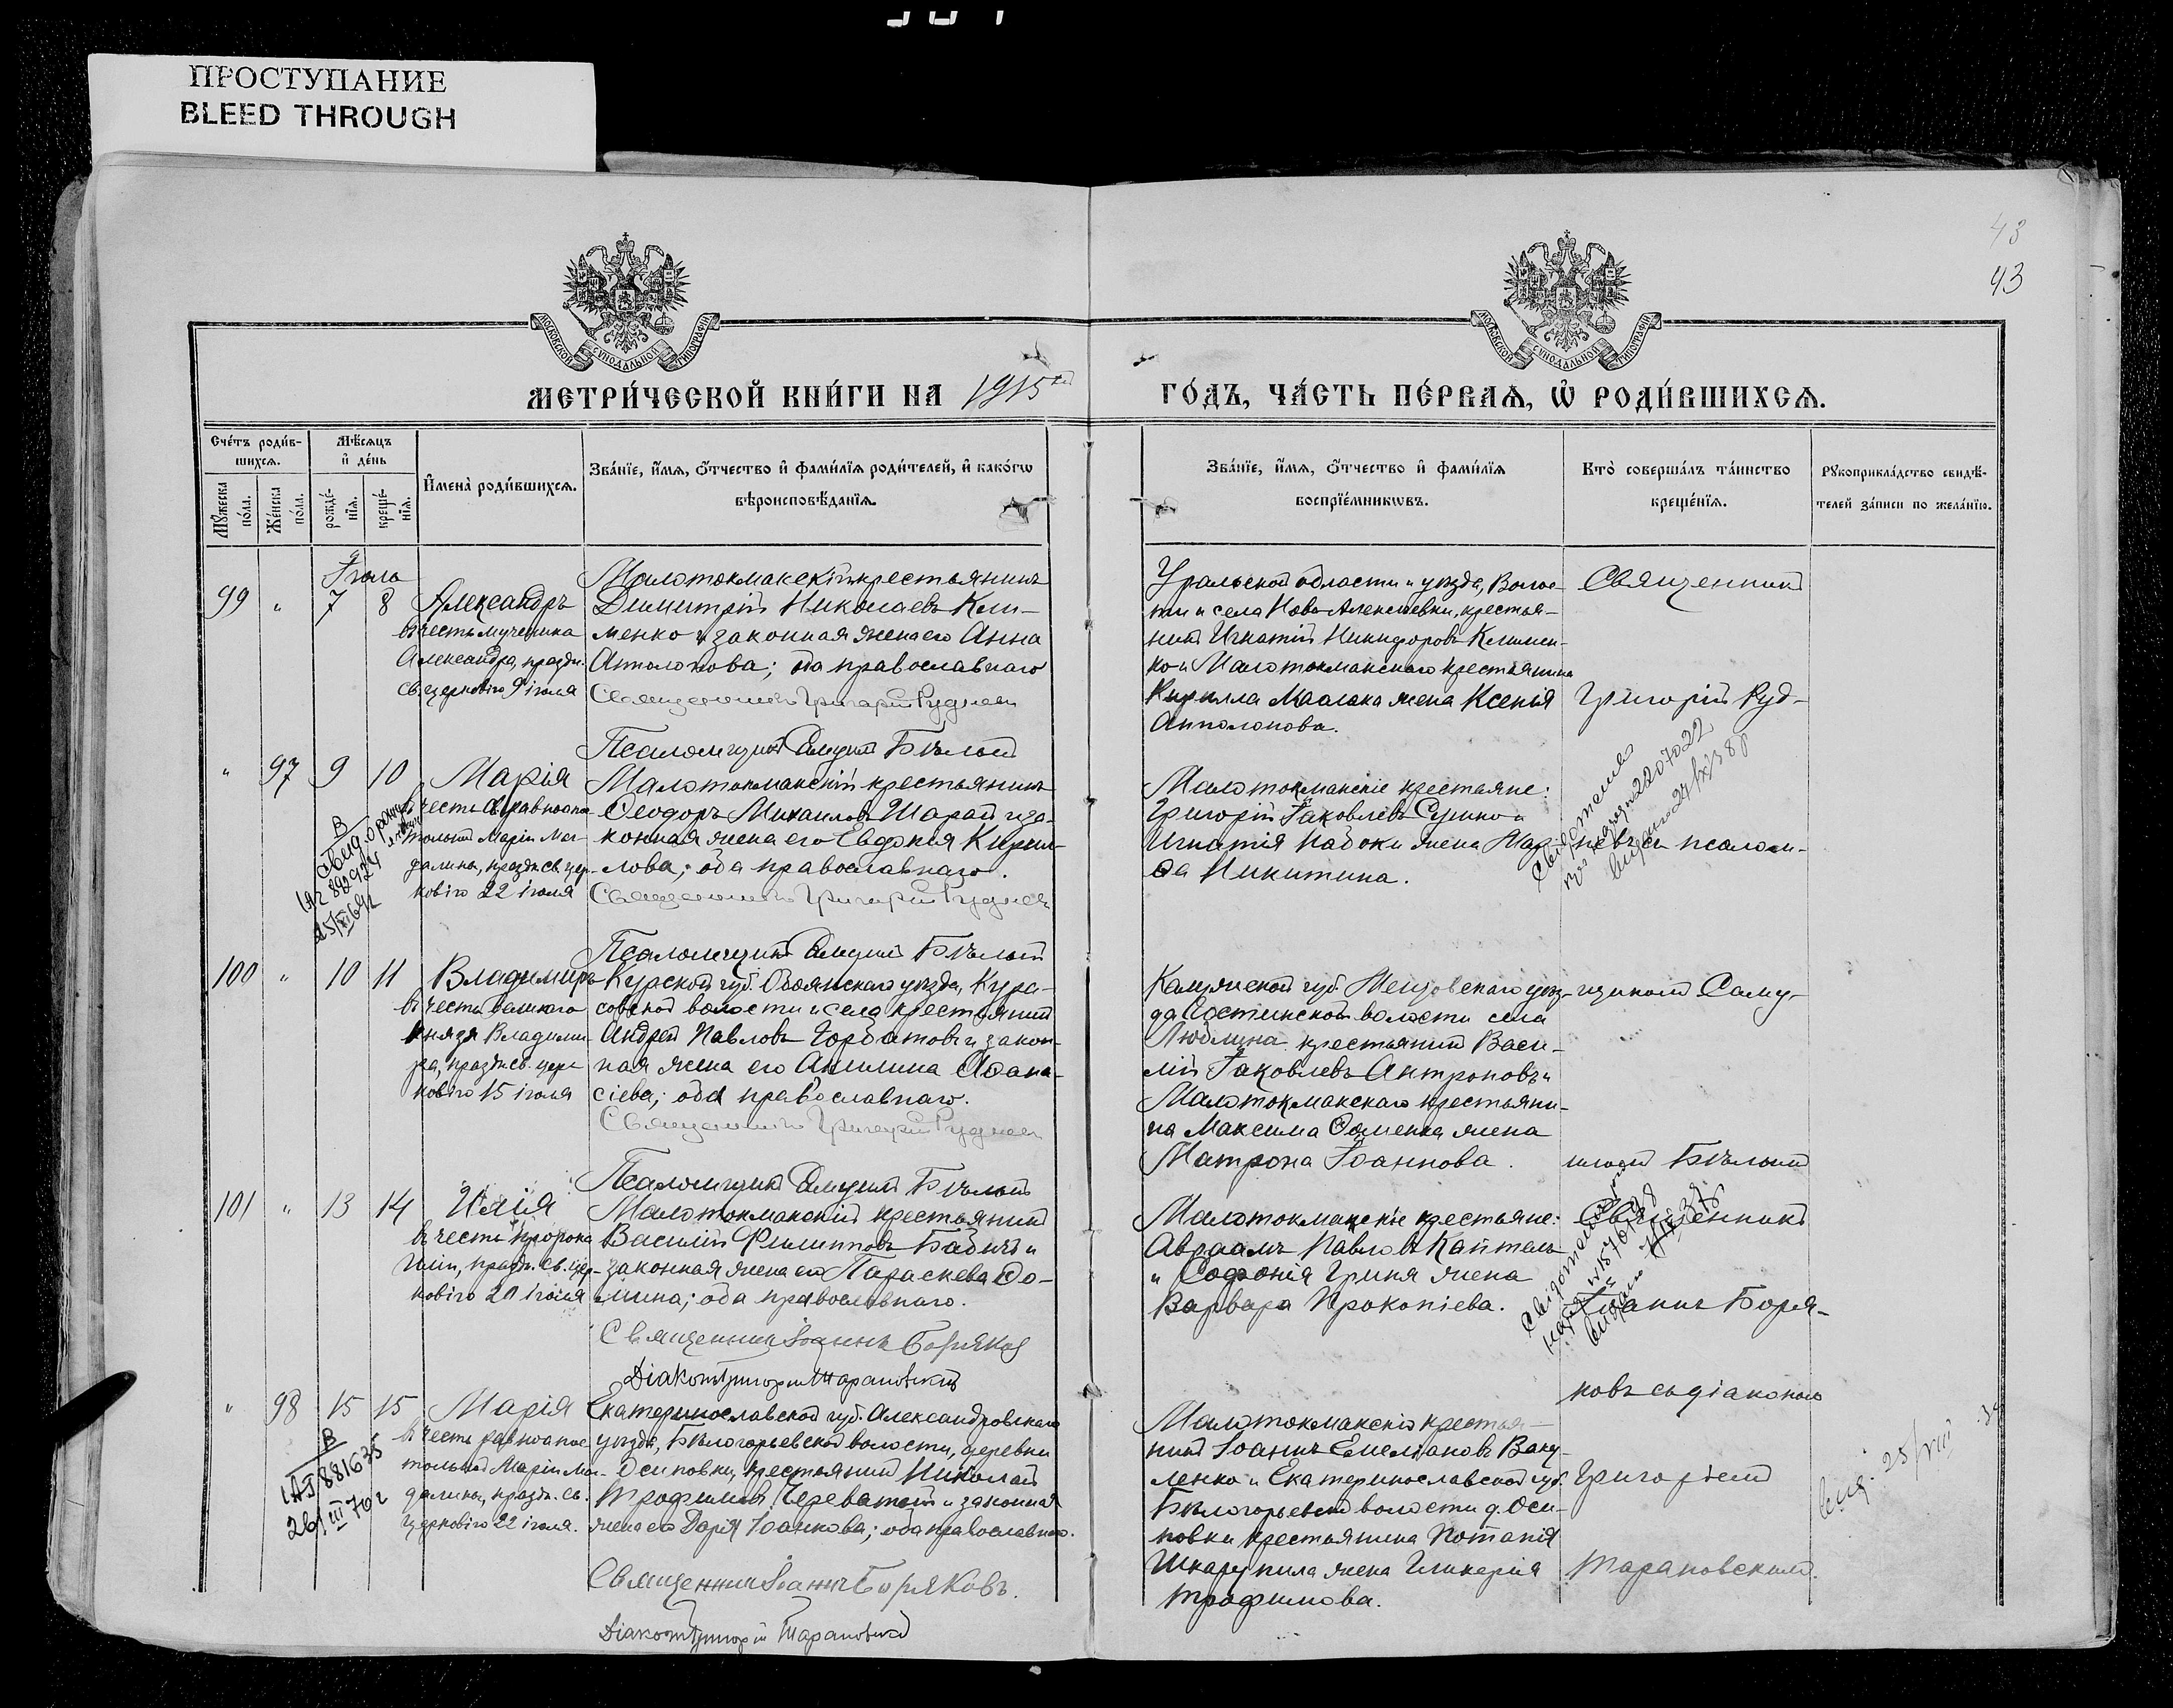 ПРОСТУПАНИЕ
BLEED THROUGH
43
43
МОСКОВСКОЙ СѴНОДАЛЬНОЙ ТИПОГРАФІИ
МОСКОВСКОЙ СѴНОДАЛЬНОЙ ТИПОГРАФІИ
МЕТРИ́ЧЕСКОЙ КНИ́ГИ НА 1915
ГО́ДЪ, ЧА́СТЬ ПЕ́РВАЯ, Ѡ РОДИ́ВШИХСЯ.
Сче́тъ роди́в-
шихся.
Мѣ́сяцъ
и де́нь
Мꙋ́жеска
по́ла.
Же́нска
по́ла.
рожде́-
нїя.
креще́-
нїя.
Имена̀ роди́вшихся.
Зва́нїе, и́мя, о́тчество и фами́лїя роди́телей, и како́гѡ
вѣроисповѣ́данїя.
Зва́нїе, и́мя, о́тчество и фами́лїя
воспрїе́мникѡвъ.
Кто̀ соверша́лъ та́инство
креще́нїя.
Рꙋкоприкла́дство свидѣ́-
телей за́писи по жела́нїю.
Іюль
99 " 7 8
Александръ
въ честь мученика
Александра, праздн.
св. церковію 9 іюля
Малотокмакскій крестьянинъ
Димитрій Николаевъ Кли-
менко и законная жена его Анна
Антонова; оба православнаго
Священникъ Григорій Рудневъ
Псаломщикъ Самуилъ Бѣлый
Уральской области и уѣзда, Волос-
ти и села Ново Алексѣевки, крестья-
нинъ Игнатій Никифоровъ Климен-
ко и Малотокмакскаго крестьянина
Кирилла жена Ксенія
Священникъ
Григорій Руд-
" 97 9 10
Марія
въ честь св. равноапос-
тольной Маріи Маг-
далины, праздн. св. цер-
ковію 22 іюля
Малотокмакскій крестьянинъ
Ѳеодоръ Михаиловъ Шарай и за-
конная жена его Евдокія Кирил-
лова; оба православнаго.
Священникъ Григорій Рудневъ
Псаломщикъ Самуилъ Бѣлый
Малотокмакскіе крестьяне:
Григорій Іаковлевъ Сушко и
Игнатія Набоки жена
Никитина.
невъ съ псалом-
100 " 10 11
Владимиръ
въ честь великаго
князя Владими-
ра, праздн. св. цер-
ковію 15 іюля
Курской губ. Обоянскаго уѣзда, Кура-
совской волости и села крестьянинъ
Андрей Павловъ Горбатовъ и закон-
ная жена его Акилина Аѳана-
сіева; оба православнаго.
Священникъ Григорій Рудневъ
Псаломщикъ Самуилъ Бѣлый
Калужской губ. Мещовскаго уѣз-
да волости села
крестьянинъ Васи-
лій Іаковлевъ Антроповъ и
Малотокмакскаго крестьяни-
на Максима жена
Матрона Іоаннова.
щикомъ Саму-
иломъ Бѣлымъ
101 " 13 14
Илія
въ честь Пророка
Иліи, праздн. св. цер-
ковію 20 іюля
Малотокмакскій крестьянинъ
Василій Филипповъ Бабичъ и
законная жена его Параскева Ѳо-
мина; оба православнаго.
Священникъ Іоаннъ Боряков
Діаконъ Григорій Тарановскій
Малотокмакскіе крестьяне:
Авраамъ Павловъ Капталъ
и Софронія Гриня жена
Варвара Прокопіева.
Священникъ
Іоаннъ Боря-
ковъ съ діакономъ
" 98 15 15
Марія
въ честь равноапос-
тольной Маріи Маг-
далины, праздн. св.
церковію 22 іюля.
Екатеринославской губ. Александровскаго
уѣзда, Бѣлогорьевской волости, деревни
Осиповки, крестьянинъ Николай
Трофимовъ Череватый и законная
жена его Дарія Іоаннова; оба православнаго.
Священникъ Іоаннъ Боряковъ.
Діаконъ Григорій Тарановскій
Малотокмакскій крестья-
нинъ Іоаннъ Емеліановъ Ваку-
ленко и Екатеринославской губ.
Бѣлогорьевской волости д. Оси-
повки крестьянина Потапія
Шкарупила жена Гликерія
Трофимова.
Григоріемъ
Тарановскимъ.